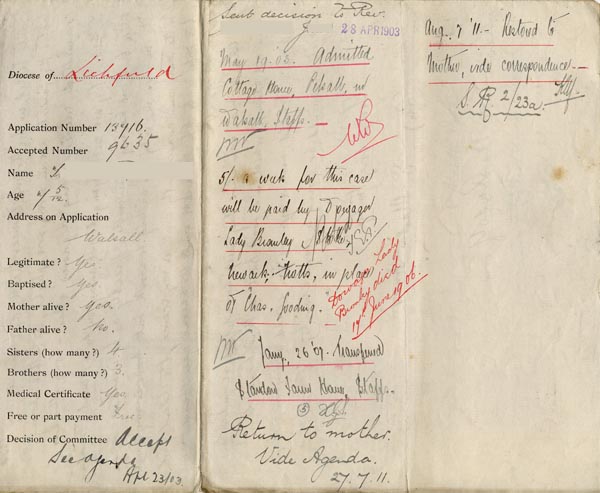 Diocese of Lichfield
Application Number 13916.
Accepted Number 9635
Name
Age 5/12
Address on Application
Walsall
Legitimate? Yes
Baptised? Yes
Mother alive? Yes.
Father alive? No.
Sisters (how many?) 4
Brothers (how many?) 3
Medical Certificate Yes
Free or part payment Free
Decision of Committee Accept
See agenda
Apl 23/03.
Sent decision to Rev.
28 APR 1903
May 19.03. Admitted
Cottage Home, Pelsall, nr
Walsall, Staffs. —
5/- a week for this case
will be paid by Dowager
Lady Bromley
Newark, Notts, in place
of Chas. Gooding.
Dowager Lady
Bromley died
17th June 1906.
Jany. 26 '09. Transferred
Standon Farm Home, Staffs.
Return to mother.
Vide Agenda.
27.7.11.
Aug. 7 '11 - Restored to
Mother, vide correspondence. —
2/23a.